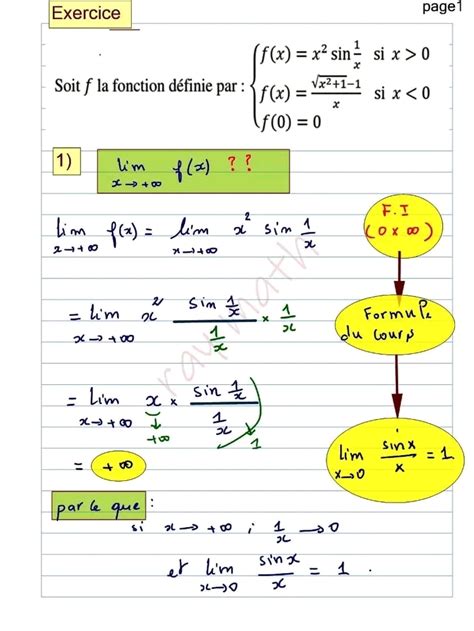 page1
Exercice
Soit f la fonction définie par : { f(x) = x² sin 1/x si x > 0
f(x) = (√(x²+1)-1)/x si x < 0
f(0) = 0
1) lim x→+∞ f(x) ??
lim x→+∞ f(x) = lim x→+∞ x² sin 1/x
F.I
(0×∞)
= lim x→+∞ x² (sin 1/x)/(1/x) × 1/x
Formule
du cours
= lim x→+∞ x × (sin 1/x)/(1/x)
+∞ 1
lim x→0 sinx/x = 1
= +∞
par ce que :
si x→+∞ ; 1/x →0
et lim x→0 sinx/x = 1 .
raymath